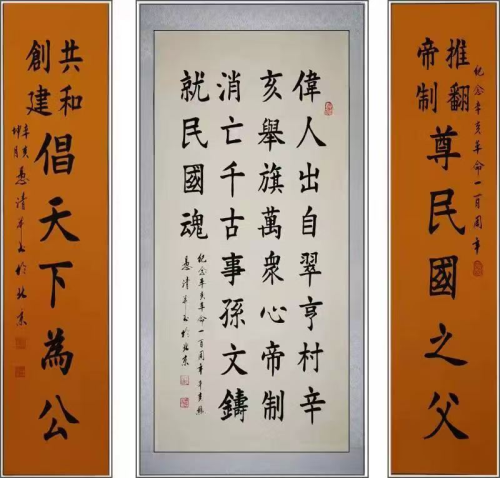 推翻
帝制
尊民國之父
紀念辛亥革命一百周年
偉人出自翠亨村辛
亥舉旗萬衆心帝制
消亡千古事孫文鑄
就民國魂
紀念辛亥革命一百周年
於北京
共和
創建
倡天下為公
於北京